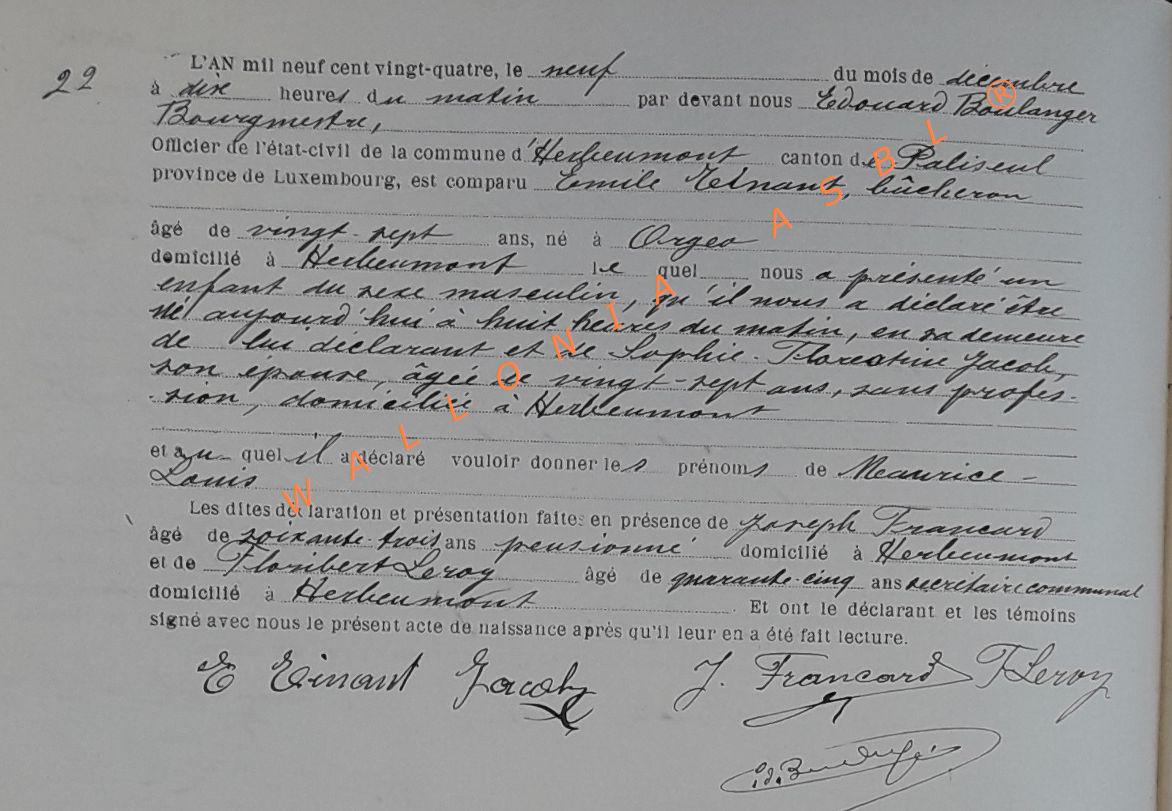 22
L'AN mil neuf cent vingt-quatre, le neuf du mois de décembre
à dix heures du matin par devant nous Edouard Boulanger
Bourgmestre,
Officier de l'état-civil de la commune d'Herbeumont canton de Paliseul
province de Luxembourg, est comparu Emile Einant, bûcheron
âgé de vingt-sept ans, né à Orgeo
domicilié à Herbeumont le quel nous a présenté un
enfant du sexe masculin, qu'il nous a déclaré être
né aujourd'hui à huit heures du matin, en sa demeure
de lui déclarant et de Sophie-Florentine Jacob,
son épouse, âgée de vingt-sept ans, sans profes-
-sion, domiciliée à Herbeumont
et au quel il a déclaré vouloir donner les prénoms de Maurice-
Louis
Les dites déclaration et présentation faites en présence de Joseph Francard
âgé de soixante-trois ans pensionné domicilié à Herbeumont
et de Floribert Leroy âgé de quarante-cinq ans secrétaire communal
domicilié à Herbeumont. Et ont le déclarant et les témoins
signé avec nous le présent acte de naissance après qu'il leur en a été fait lecture.
E Einant Jacoby J. Francard F Leroy
WALLONIA ASBL ®